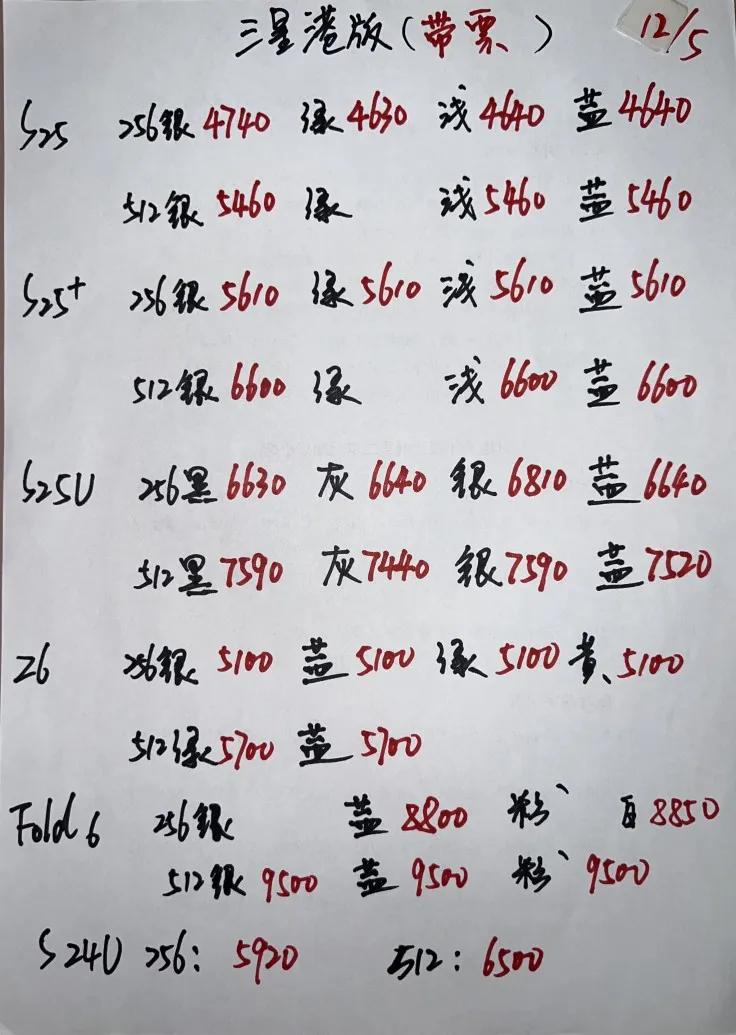 三星港版(带票) 12/5
S25 256银4740 绿4630 浅4640 蓝4640
512银5460 绿 浅5460 蓝5460
S25+ 256银5610 绿5610 浅5610 蓝5610
512银6600 绿 浅6600 蓝6600
S25U 256黑6630 灰6640 银6810 蓝6640
512黑7590 灰7440 银7590 蓝7520
Z6 256银5100 蓝5100 绿5100 黄5100
512绿5700 蓝5700
Fold6 256银 蓝8800 粉 白8850
512银9500 蓝9500 粉9500
S24U 256: 5920 512: 6500